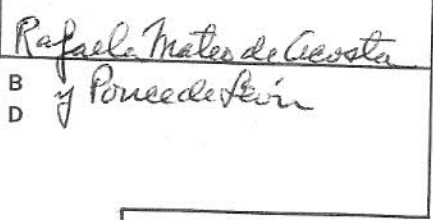 Rafaela Mateo de Acosta
B y Ponce de León
D